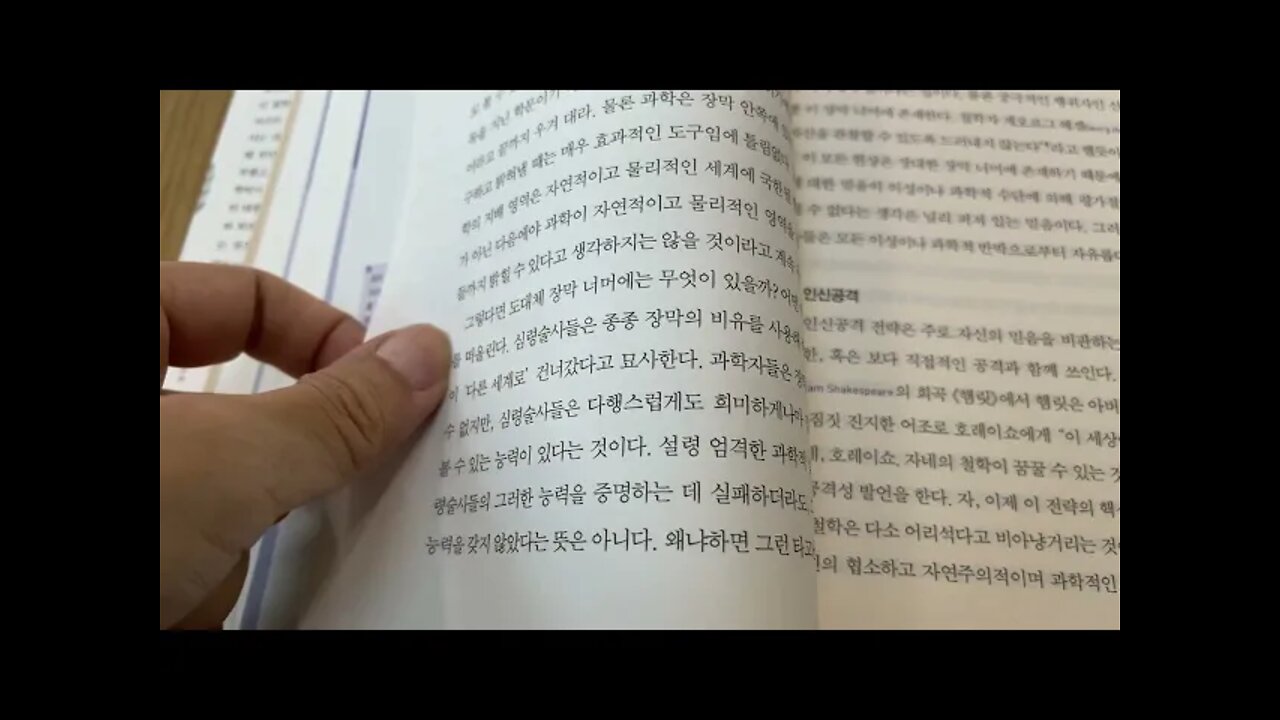 도 볼 수
독을 지닌 학문이기
이라고 끝까지 우겨 대라. 물론 과학은 장막 안쪽에
구하고 밝혀낼 때는 매우 효과적인 도구임에 틀림없다
학의 지배 영역은 자연적이고 물리적인 세계에 국한
가 아닌 다음에야 과학이 자연적이고 물리적인 영역을
끝까지 밝힐 수 있다고 생각하지는 않을 것이라고 계속
그렇다면 도대체 장막 너머에는 무엇이 있을까?
를 떠올린다. 심령술사들은 종종 장막의 비유를 사용
이 '다른 세계로' 건너갔다고 묘사한다. 과학자들은
수 없지만, 심령술사들은 다행스럽게도 희미하게나마
볼 수 있는 능력이 있다는 것이다. 설령 엄격한 과학적
령술사들의 그러한 능력을 증명하는 데 실패하더라도
능력을 갖지 않았다는 뜻은 아니다. 왜냐하면 그런 타고
이 장막 너머에 존재한다. 철학자 게오르그 헤겔
관찰할 수 있도록 드러내지 않는다"라고 했듯이
이 모든 현상은 장대한 장막 너머에 존재하기 때문에
대한 믿음이 이성이나 과학적 수단에 의해 평가될
수 없다는 생각은 널리 퍼져 있는 믿음이다. 그러
들은 모든 이성이나 과학적 반박으로부터 자유롭다
인신공격
인신공격 전략은 주로 자신의 믿음을 비판하는
한, 혹은 보다 직접적인 공격과 함께 쓰인다.
am Shakespeare의 희곡 《햄릿》에서 햄릿은 아버
짐짓 진지한 어조로 호레이쇼에게 "이 세상
호레이쇼. 자네의 철학이 꿈꿀 수 있는 것
공격성 발언을 한다. 자, 이제 이 전략의 핵
철학은 다소 어리석다고 비아냥거리는 것
인의 협소하고 자연주의적이며 과학적인